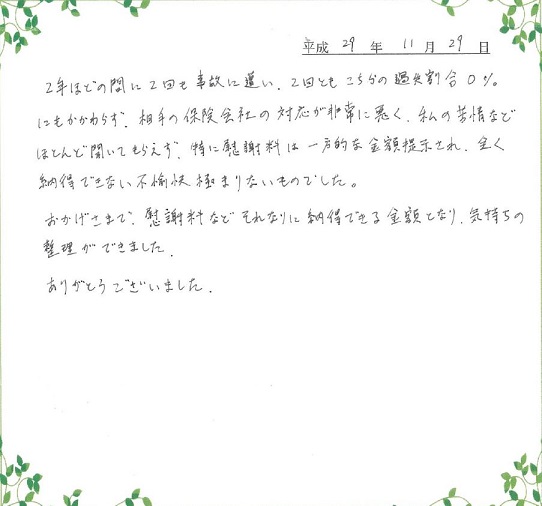 平成 29 年 11 月 29 日
2年ほどの間に2回も事故に遭い、2回ともこちらの過失割合0%。
にもかかわらず、相手の保険会社の対応が非常に悪く、私の苦情など
ほとんど聞いてもらえず、特に慰謝料は一方的な金額提示され、全く
納得できない不愉快極まりないものでした。
おかげさまで、慰謝料などそれなりに納得できる金額となり、気持ちの
整理ができました。
ありがとうございました。